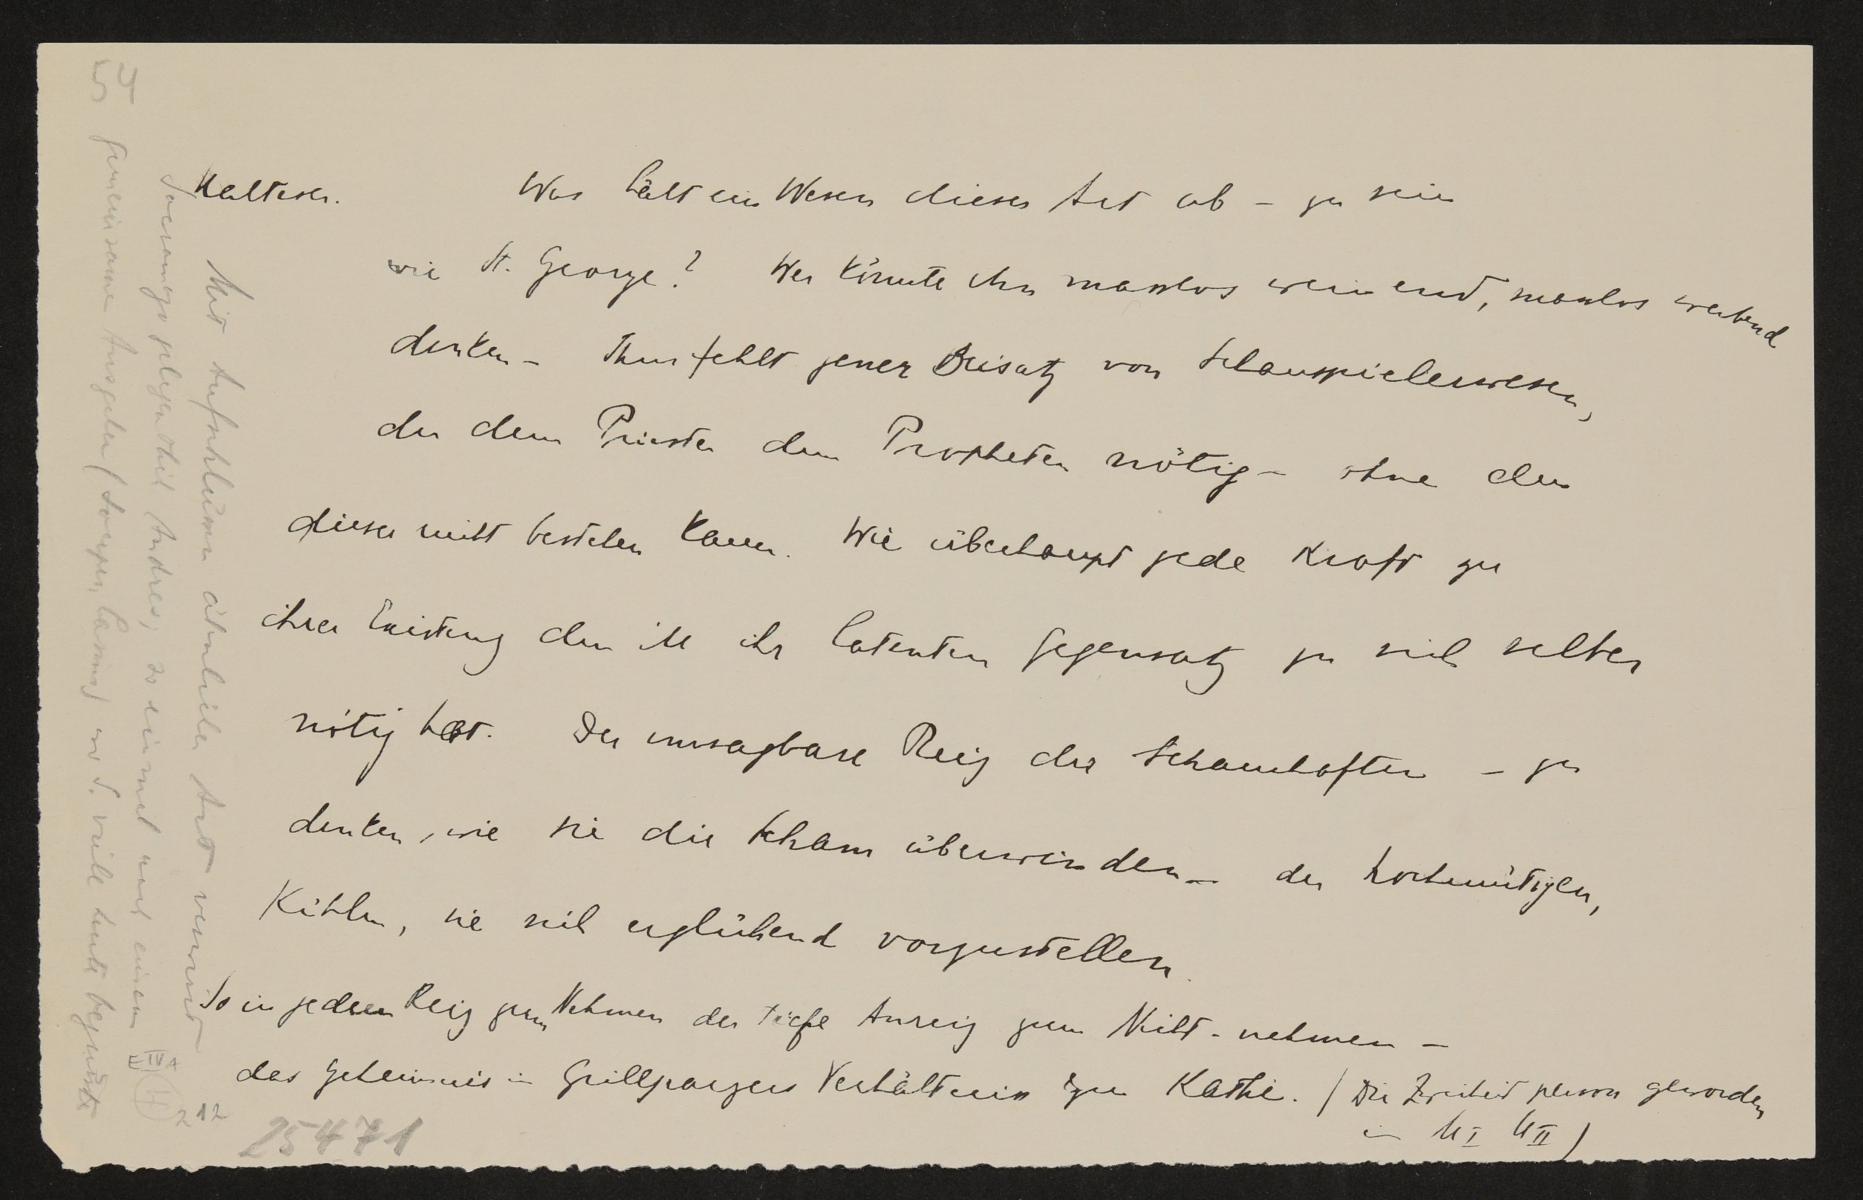 Malteser. Was hält ein Wesen dieser Art ab – zu sein
wie St. George? Wer könnte ihn masslos weinend, masslos werbend
denken – Ihm fehlt jener Beisatz von Schauspielerwesen,
der dem Priester dem Propheten nötig – ohne den
dieser nicht bestehen kann. Wie überhaupt jede Kraft zu
ihrer Existenz den ihr latenten Gegensatz zu sich selber
nötig hat. Der unsagbare Reiz der Schamhaften – zu
denken, wie sie die Scham überwinden – der hochmütigen,
Kühlen, sie sich erglühend vorzustellen.
So in jedem Reiz zum Nehmen der tiefe Anreiz zum Nicht-nehmen –
das Geheimnis in Grillparzers Verhältnis zu Kathi. (Die Zweiheit person geworden
in M I M II)
Mit Aufnahme ähnlicher Art
Andres; so einmal mit einem
gemeinsame viele Leute begrüsste
E IV A
4
212
25471